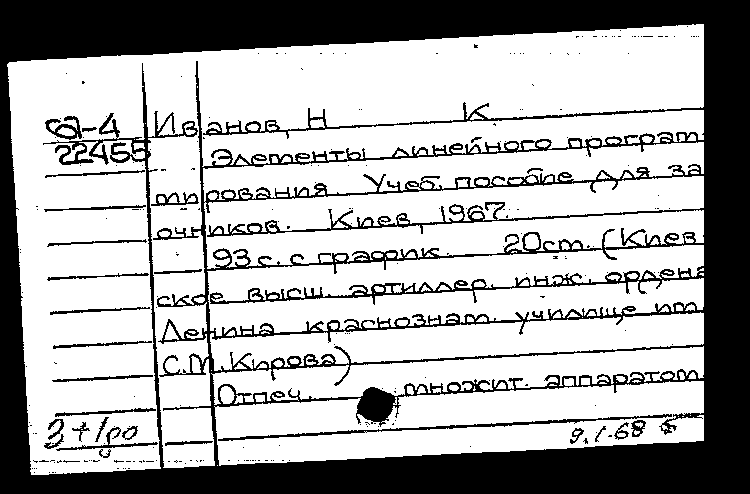 67-4 Иванов, Н К
22455 Элементы линейного програм-
мирования. Учеб. пособие для за-
очников. Киев, 1967.
93 с. с график. 20см. (Киев-
ское высш. артиллер. инж. ордена
Ленина краснознам. училище им.
С.М. Кирова)
Отпеч. множит. аппаратом.
3+1ро
9.1.68